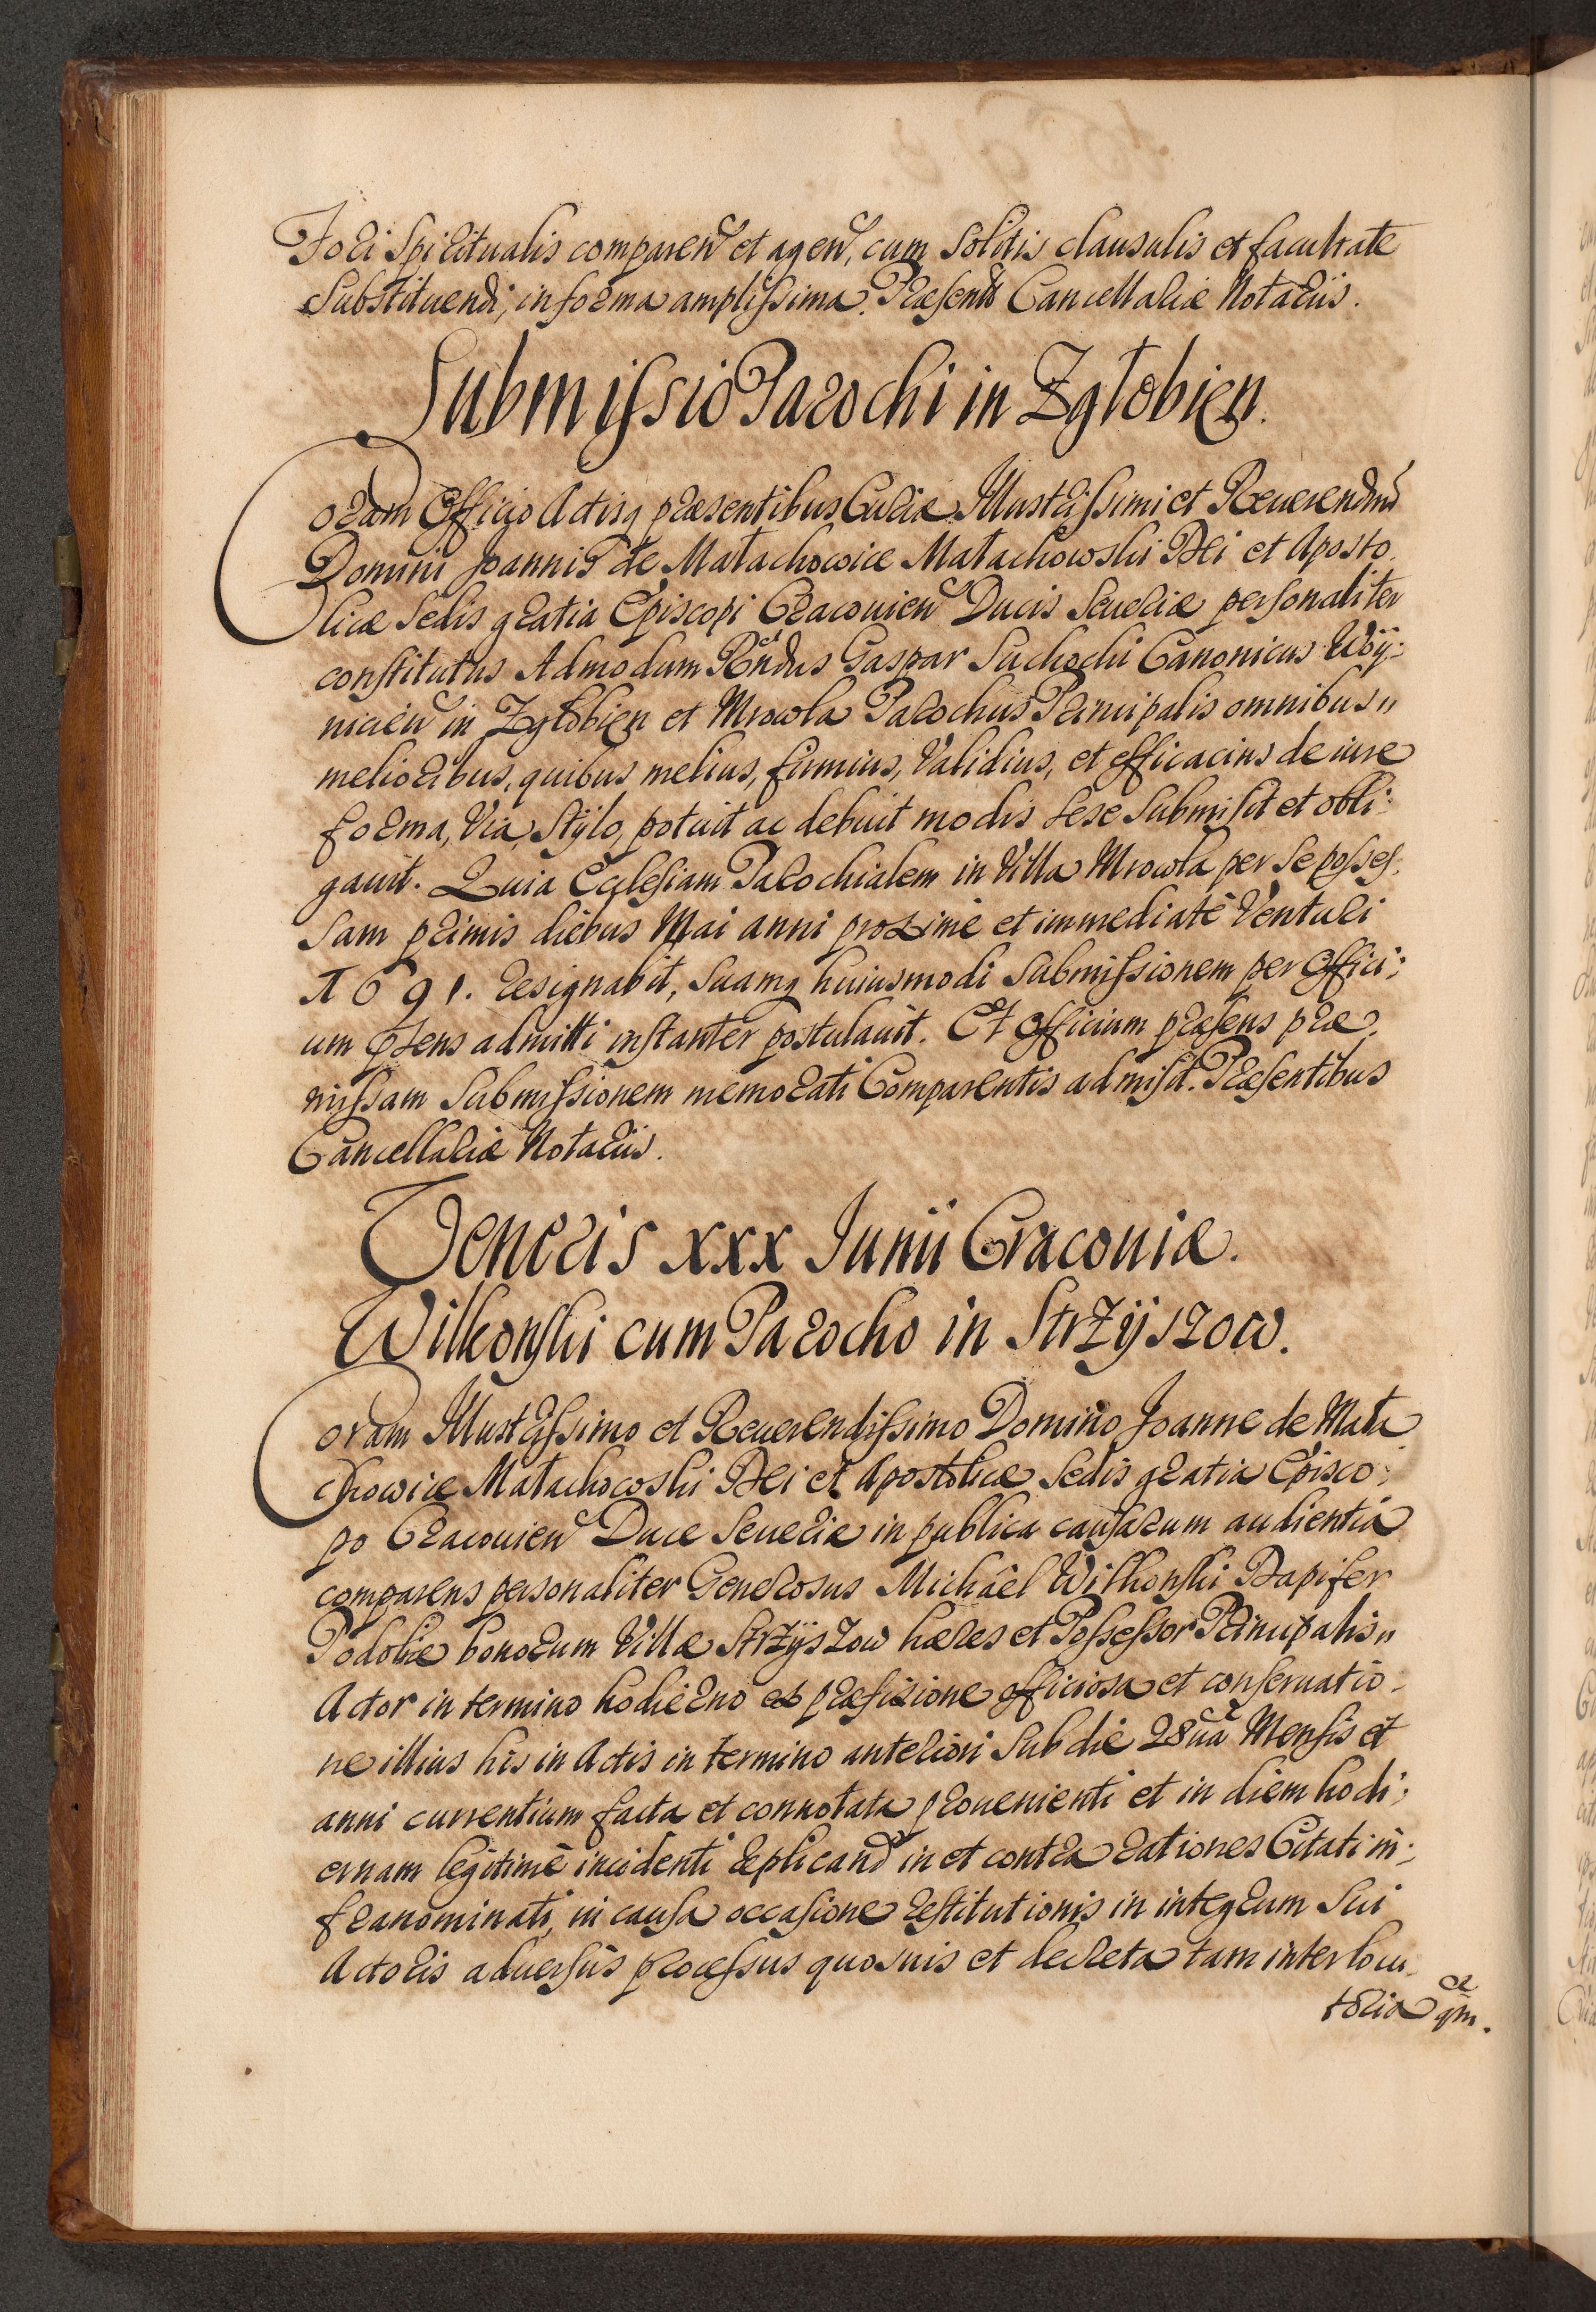 Fori Spiritualis comparen et agen, cum Solitis clausulis et facultate
Substituendi, in forma amplissima. Præsentib Cancellariæ Notariis.
Submissio Parochi in Zgłobien.
Coram Officio Actisq præsentibus Curiæ Illustrissimi et Reuerendmi
Domini Joannis de Małachowice Małachowski Dei et Aposto
licæ Sedis gratia Episcopi Cracouien Ducis Seueriæ personaliter
constitutus Admodum Rndus Gaspar Suchocki Canonicus Woÿ:
nicien in Zgłobien et Mrowla Parochus Principalis omnibus
melioribus, quibus melius, firmius, Validius, et efficacius de iure
forma, Via, Stÿlo, potuit ac debuit modis sese Submisit et obli:
gauit. Quia Ecclesiam Parochialem in Villa Mrowla per Se posses:
sam primis diebus Mai anni proximè et immediatè Venturi
1691. resignabit, Suamq huiusmodi Submissionem per Offici:
um pñens admitti instanter postulauit. Et Officium præsens præ
missam Submissionem memorati Comparentis admisit. Præsentibus
Cancellariæ Notariis.
Veneris xxx Junii Cracouiæ.
Wilkonski cum Parocho in Strzÿszow.
Coram Illustrissimo et Reuerendissimo Domino Joanne de Mała
chowice Małachowski Dei et Apostolicæ Sedis gratia Episco:
po Cracouien Duce Seueriæ in publica causarum audientia
comparens personaliter Generosus Michaël Wilkonski Dapifer
Podoliæ bonorum Villæ Strzÿszow hæres et Possessor Principalis
Actor in termino hodierno ex præfixione officiosa et conseruatio:
ne illius his in Actis in termino anteriori Sub die 28ua Mensis et
anni currentium facta et connotata prouenienti et in diem hodi:
ernam legitimè incidenti replicand in et contra rationes Citati in:
franominati, in causa occasione restitutionis in integrum Sui
Actoris aduersùs processus quosuis et decreta tam interlocu
toria qm.